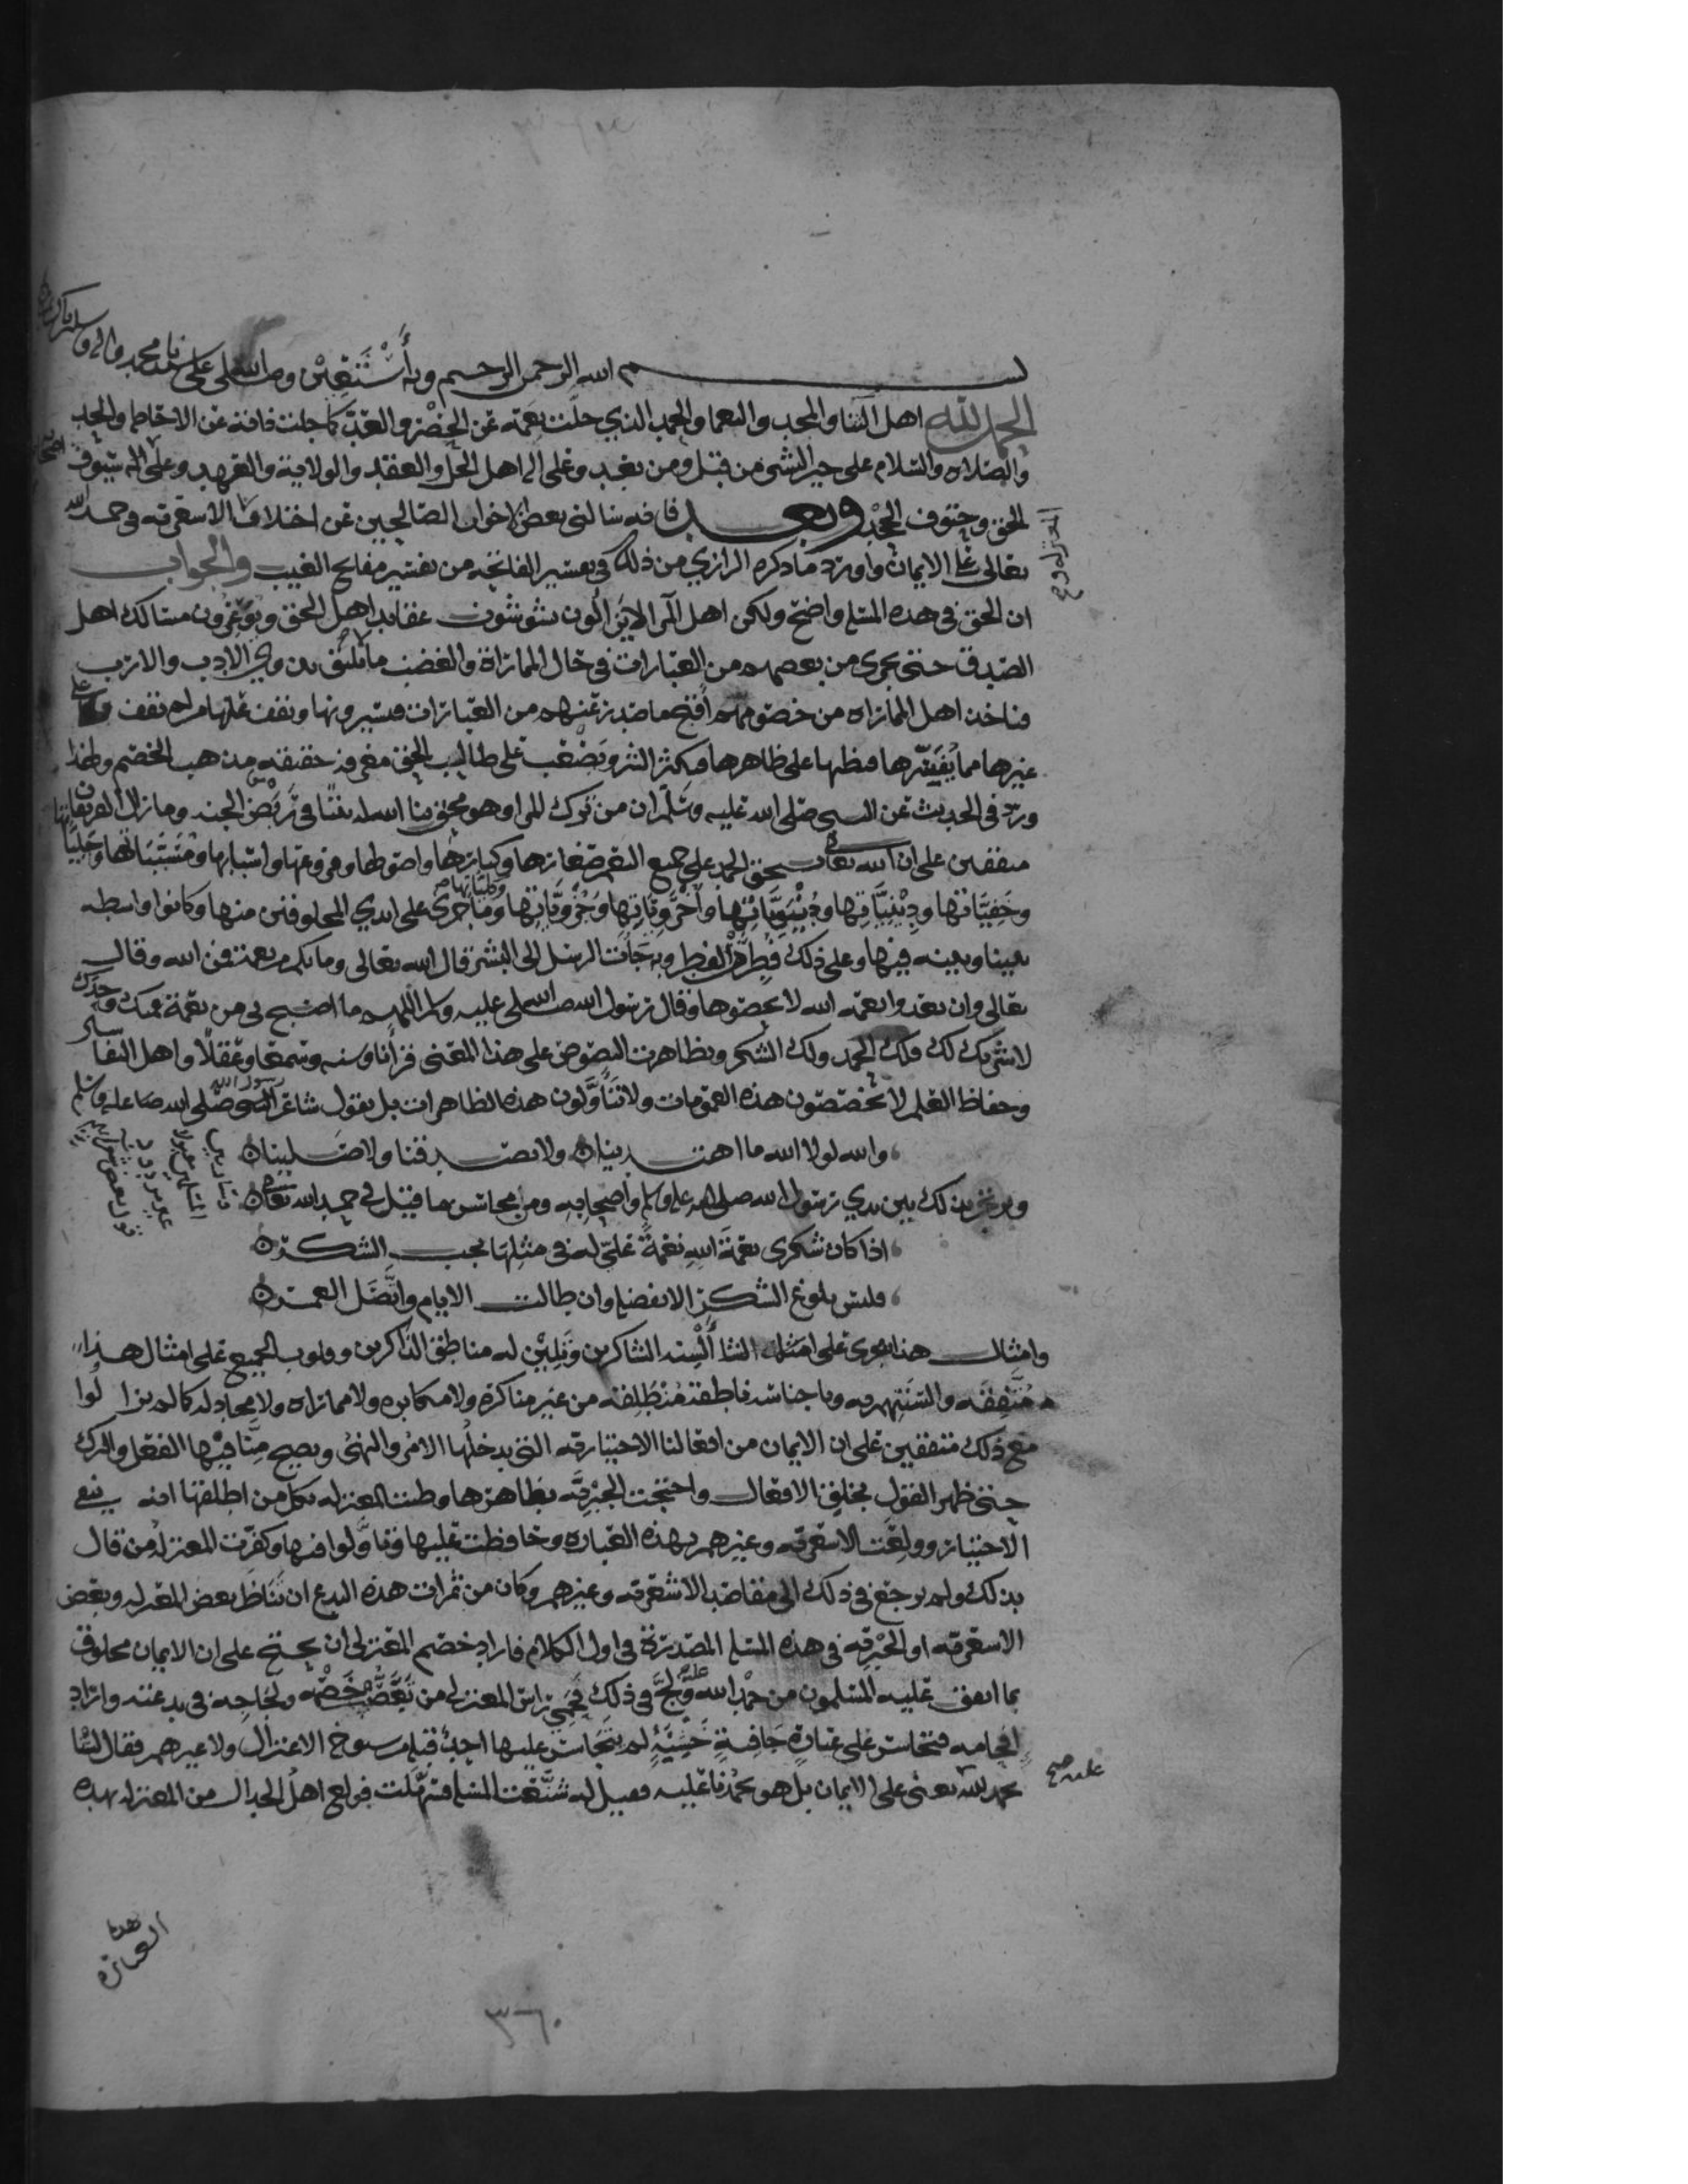 بسم الله الرحمن الرحيم وبه أستعين وصلى الله على سيدنا محمد واله وسلم
الحمد لله اهل الثنا والمجد والنعما والحمد الذي جلت نعمه عن الحصر والعد كما جلت ذاته عن الاحاطه والحد
والصلاه والسلام على خير البشر من قبل ومن بعد وعلى اله اهل الحل والعقد والولاية والعهد وعلى اله سيوف
الحق وحتوف الجحد وبعد فانه سالني بعض الاخوان الصالحين عن اختلاف الاشعريه في حمد الله
تعالى على الايمان واورد ما ذكره الرازي من ذلك في تفسير الفاتحه من تفسير مفاتيح الغيب والجواب
ان الحق في هذه المسئله واضح ولكن اهل المرا لا يزالون يشوشون عقايد اهل الحق ويوعرون مسالك اهل
الصدق حتى يجرى من بعضهم من العبارات في حال المماراة والغضب ما لا يليق بذوي الادب والارب
فياخذ اهل المماراه من خصومهم أقبح ما صدر عنهم من العبارات فيشيرونها ويقف عليها من لم يقف على
غيرها مما يفسرها فيظنها على ظاهرها فيكثر الشر ويصعب على طالب الحق معرفة حقيقة مذهب الخصم ولهذا
ورد في الحديث عن النبي صلى الله عليه وسلم ان من ترك المرا وهو محق بنا الله له بيتا في ربض الجنه وما زال الفريقان
متفقين على ان الله تعالى يستحق الحمد على جميع النعم صغارها وكبارها واصولها وفروعها واسبابها ومسبباتها وجلياتها
وخفياتها ودينياتها ودنيوياتها وأخروياتها وجزوياتها وكلياتها وما جرى على ايدي المخلوقين منها وكانوا واسطه
بيننا وبينه فيها وعلى ذلك فطرهم الفطر وبه جات الرسل الى البشر قال الله تعالى وما بكم من نعمة فمن الله وقال
تعالى وان تعدوا نعمه الله لا تحصوها وقال رسول الله صلى الله عليه وسلم اللهم ما اصبح بي من نعمة فمنك وحدك
لا شريك لك فلك الحمد ولك الشكر وتظاهرت النصوص على هذا المعنى قرانا وسنه وسمعا وعقلا واهل التفاسير
وحفاظ العلم لا يخصصون هذه العمومات ولا يتأولون هذه الظاهرات بل يقول شاعر رسول الله صلى الله عليه وسلم
والله لولا الله ما اهتدينا ولا تصدقنا ولا صلينا
ويرتجز بذلك بين يدي رسول الله صلى الله عليه وسلم وأصحابه ومن محاسن ما قيل في حمد الله تعالى
اذا كان شكرى نعمة الله نعمة علي له في مثلها يجب الشكر
فليس بلوغ الشكر الا بفضله وان طالت الايام واتصل العمر
وامثال هذا يجرى على السنه الشاكرين وتلين له مناطق الذاكرين وقلوب الجميع على امثال هذا
متفقه والسنتهم به وباجناسه ناطقة منطلقه من غير مناكرة ولا مكابره ولا مماراه ولا مجادله كما لم يزالوا
مع ذلك متفقين على ان الايمان من افعالنا الاختياريه التي يدخلها الامر والنهي ويصح منا فيها الفعل والترك
حتى ظهر القول بخلق الافعال واحتجت الجبريه بظاهرها وظنت المعتزله بكل من اطلقها انه ينفي
الاختيار وولعت الاشعريه وغيرهم بهذه العباره وحافظت عليها وتاولوا فيها وكفرت المعتزله من قال
بذلك ولم يرجع في ذلك الى مقاصد الاشعريه وغيرهم وكان من ثمرات هذه البدع ان تناظر بعض المعتزله وبعض
الاشعريه او الجبريه في هذه المسئله المصدرة في اول الكلام فاراد خصم المعتزلي ان يحتج على ان الايمان مخلوق
بما اتفق عليه المسلمون من حمد الله عليه ولج في ذلك فحمي راس المعتزلي من تعصب خصمه ولجاجه في بدعته واراد
افحامه فتجاسر على عبارة جافية خشنة لم يتجاسر عليها احد قبله من شيوخ الاعتزال ولا غيرهم فقال انا لا
نحمد الله يعنى على الايمان بل هو يحمدنا عليه فقيل له شنعت المسئله فسهلت فولع اهل الجدال من المعتزله بهذه
هذه
العباره
٣٦٠